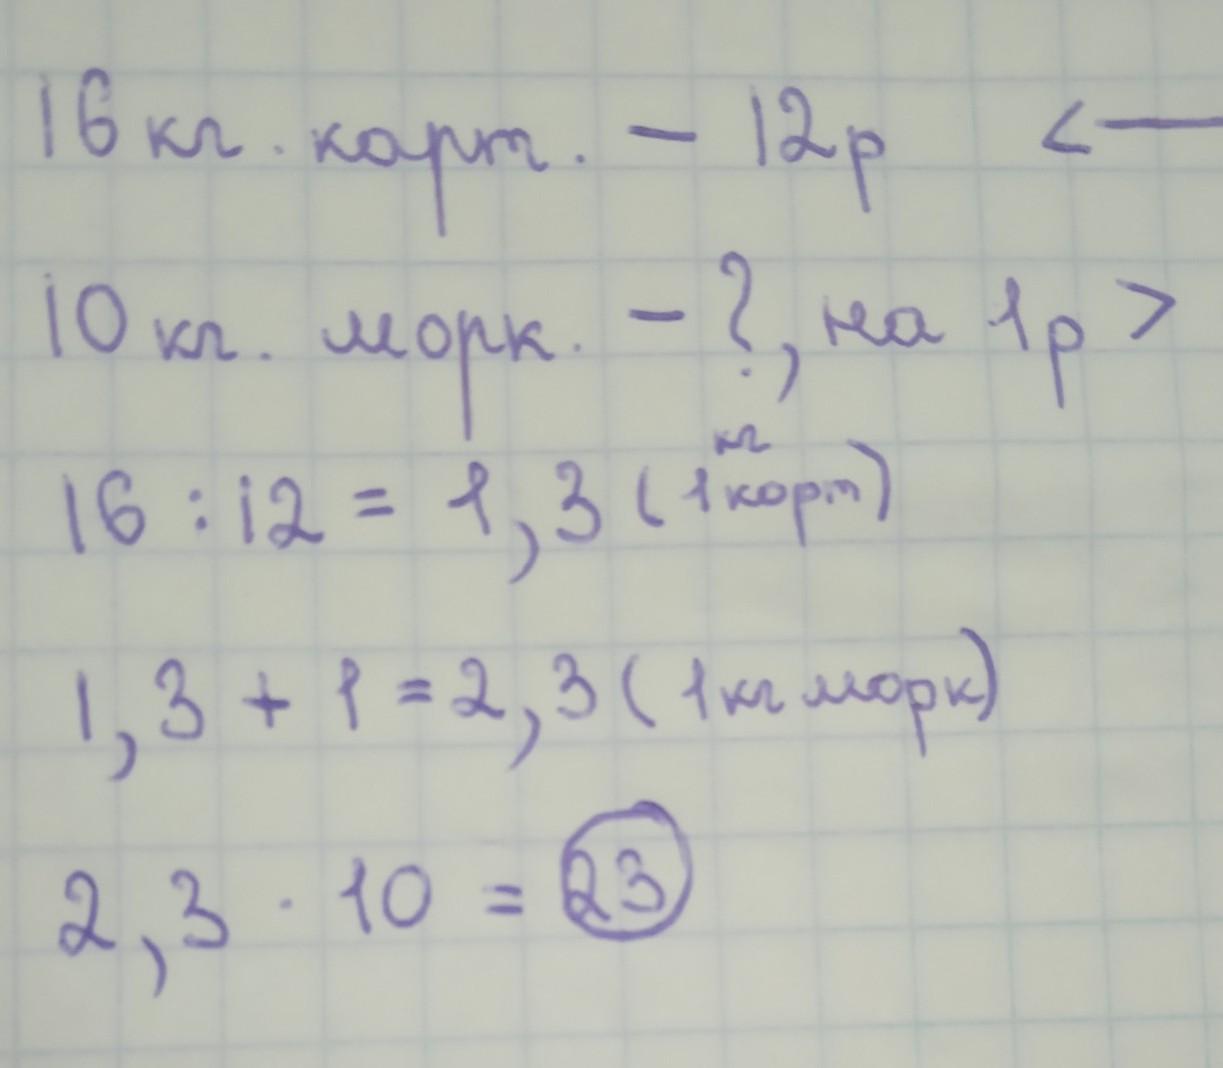 16 кг. карт. – 12р <—
10 кг. морк. – ?, на 1р >
16 : 12 = 1,3 (1 кг карт)
1,3 + 1 = 2,3 (1 кг морк)
2,3 · 10 = 23